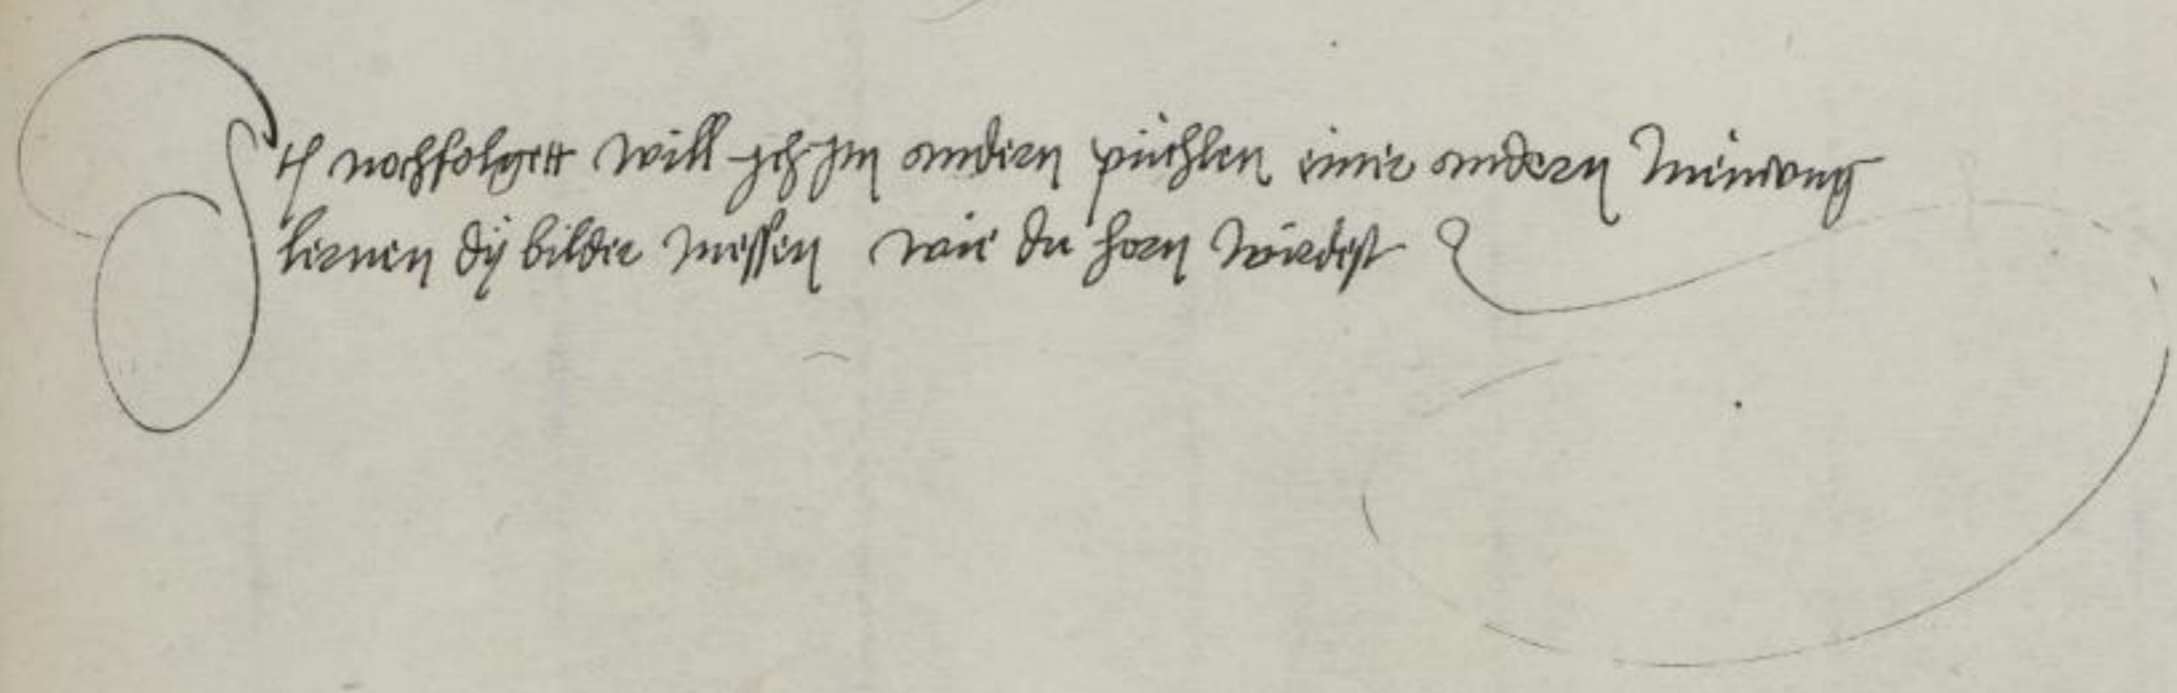 Jch nochfolgett will jch jm andern püchlen einer andern meinvng
lernen dÿ bilder messen wie du horn würdest